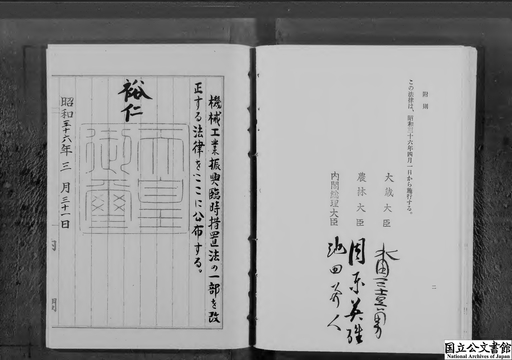 附則
この法律は、昭和三十六年四月一日から施行する。
大蔵大臣 水田三喜男
農林大臣 周東英雄
内閣総理大臣 池田勇人
二
機械工業振興臨時措置法の一部を改
正する法律をここに公布する。
裕仁
天皇
御璽
昭和三十六年三月三十一日
国立公文書館
National Archives of Japan